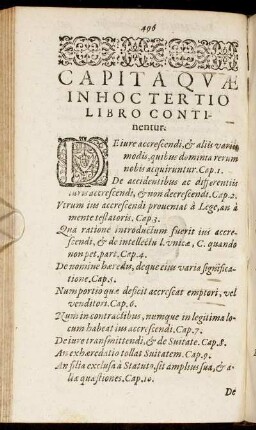 496
CAPITA QVÆ
IN HOC TERTIO
LIBRO CONTI-
nentur.
DE iure accrescendi, & aliis variis
modis, quibus dominia rerum
nobis acquiruntur. Cap. 1.
De accidentibus ac differentiis
iuris accrescendi, & non decrescendi. Cap. 2.
Vtrum ius accrescendi proueniat à Lege, an à
mente testatoris. Cap. 3.
Qua ratione introductum fuerit ius accre-
scendi, & de intellectu l. vnicæ, C. quando
non pet. part. Cap. 4.
De nomine hæredis, deque eius varia significa-
tione. Cap. 5.
Num portio quæ deficit accrescat emptori, vel
venditori. Cap. 6.
Num in contractibus, numque in legitima lo-
cum habeat ius accrescendi. Cap. 7.
De iure transmittendi, & de Suitate. Cap. 8.
An exhæredatio tollat Suitatem. Cap. 9.
An filia exclusa à Statuto, sit amplius sua, & a-
liæ quæstiones. Cap. 10.
De